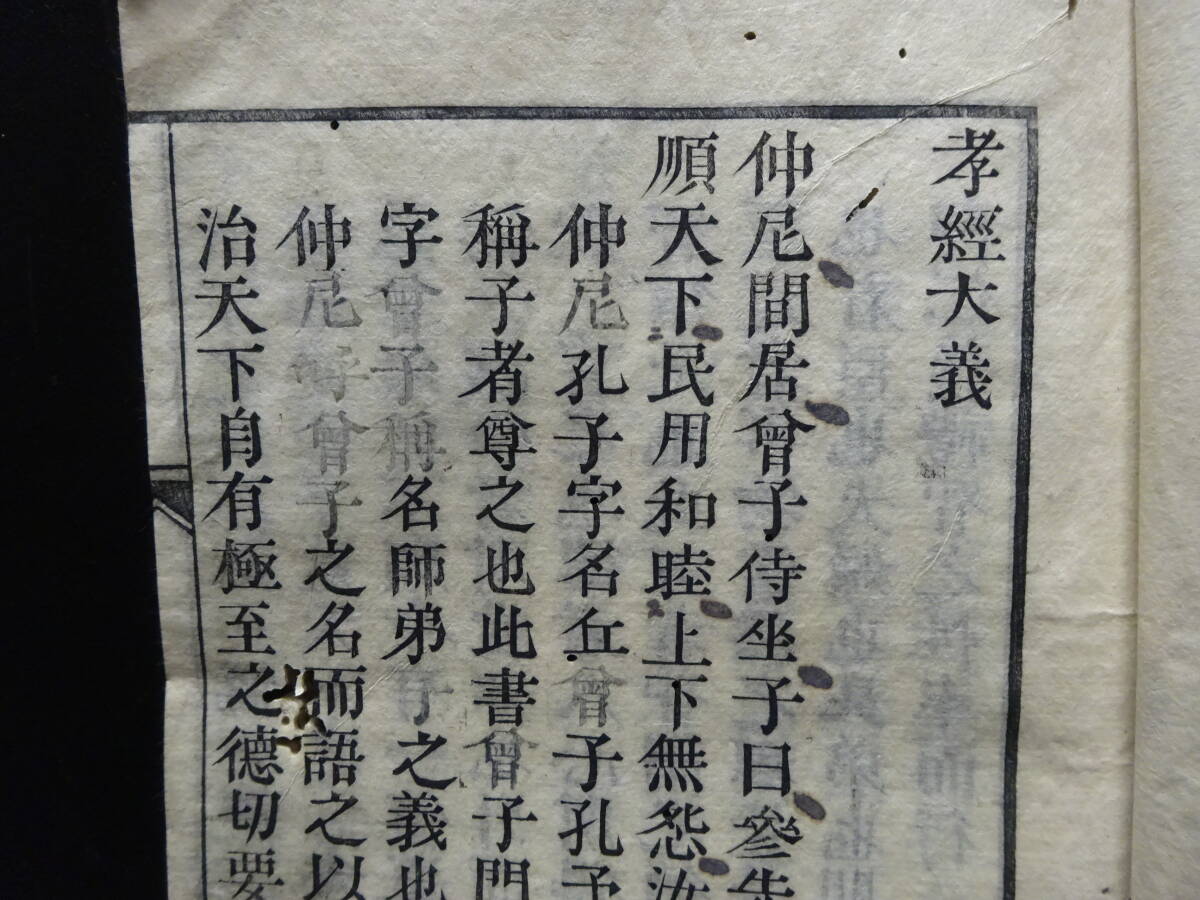 孝經大義
仲尼間居曾子侍坐子曰參先
順天下民用和睦上下無怨汝
仲尼孔子字名丘曾子孔子
稱子者尊之也此書曾子門
字曾子稱名師弟子之義也
仲尼呼曾子之名而語之以
治天下自有極至之德切要